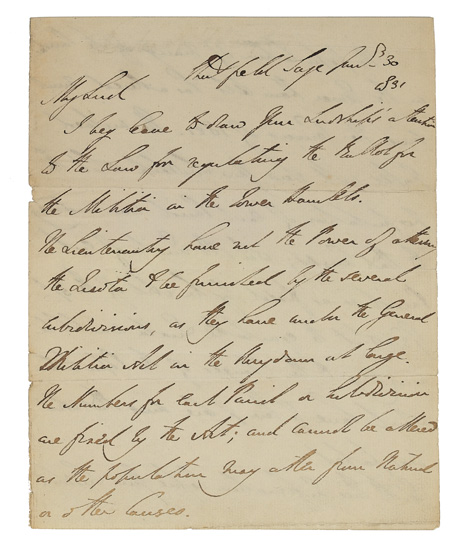 Strathfield Saye Jan 30
1831
My Lord
I beg leave to draw Your Lordship's attention
to the Law for regulating the Ballot for
the Militia in the Tower Hamlets.
The Lieutenantcy have not the Power of altering
the Quota to be furnished by the several
subdivisions, as they have under the General
Militia Act in the Kingdom at large.
The Numbers for each Parish or subdivision
are fixed by the Act; and cannot be altered
as the population may alter from Natural
or other Causes.